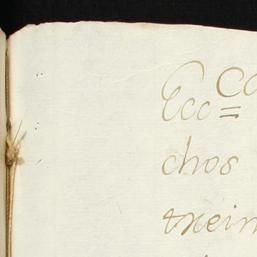 Ecc=Co
chos
trein